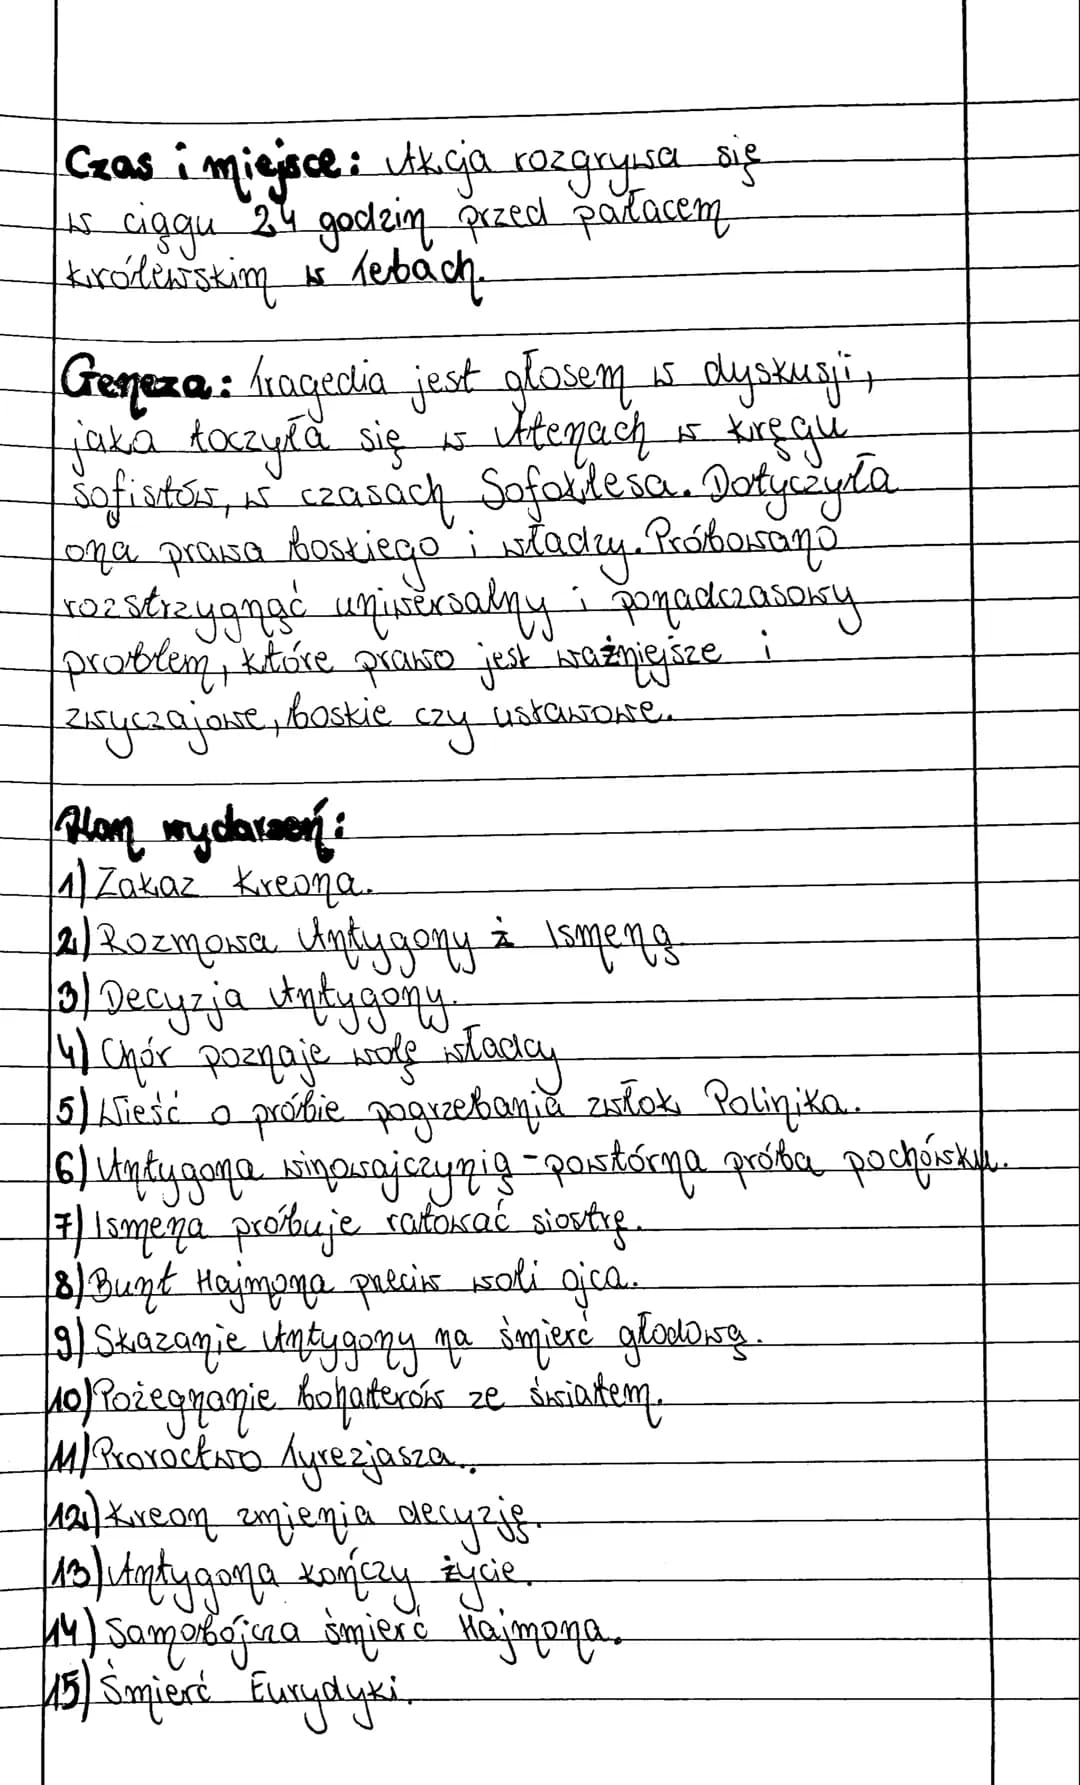 Czas i miejsce: Akcja rozgrywa się
w ciągu 24 godzin przed pałacem
królewskim w Tebach.
Geneza: Tragedia jest głosem w dyskusji,
jaka toczyła się w Atenach w kręgu
sofistów, w czasach Sofoklesa. Dotyczyła
ona prawa boskiego i władzy. Próbowano
rozstrzygnąć uniwersalny i ponadczasowy
problem, które prawo jest ważniejsze i
zwyczajowe, boskie czy ustawowe.
Plan wydarzeń:
1) Zakaz Kreona.
2) Rozmowa Antygony z Ismeną
3) Decyzja Antygony.
4) Chór poznaje wolę władcy
5) Wieść o próbie pogrzebania zwłok Polinika.
6) Antygona winowajczynią - powtórna próba pochówku.
7) Ismena próbuje ratować siostrę.
8) Bunt Hajmona przeciw woli ojca.
9) Skazanie Antygony na śmierć głodową.
10) Pożegnanie bohaterów ze światem.
11) Proroctwo Tyrezjasza.
12) Kreon zmienia decyzję.
13) Antygona kończy życie.
14) Samobójcza śmierć Hajmona.
15) Śmierć Eurydyki.